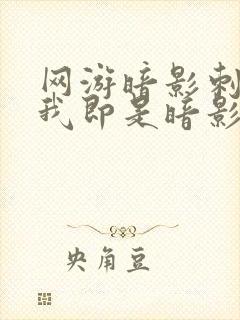 网游暗影刺
我即是暗影
央角豆